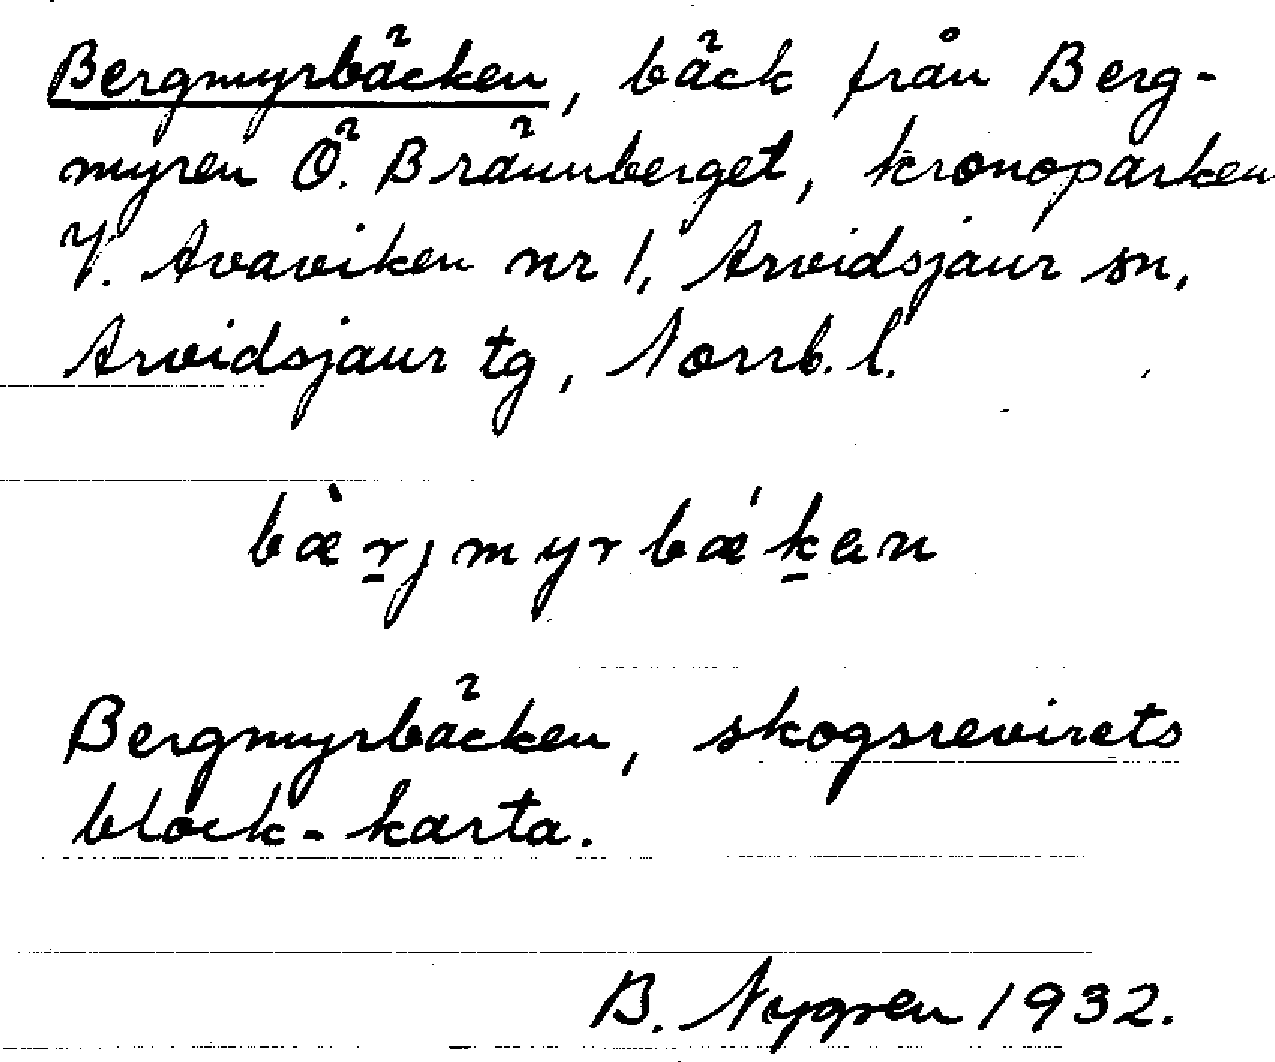 Bergmyrbäcken, bäck från Berg-
myren Ö. Brännberget, kronoparken
Y. Avaviken nr 1, Arvidsjaur sn,
Arvidsjaur tg, Norrb. l.
bæ̀r̲jmyrbǽk̲an
Bergmyrbäcken, skogsrevirets
block-karta.
B. Nygren 1932.